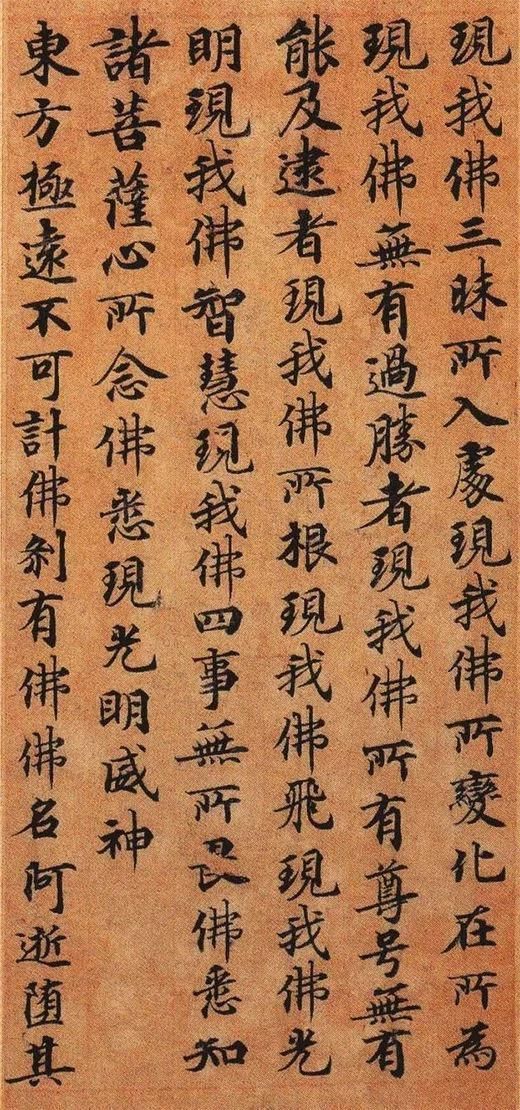 現我佛三昧所入處現我佛所變化在所為
現我佛無有過勝者現我佛所有尊号無有
能及逮者現我佛所根現我佛飛現我佛光
明現我佛智慧現我佛四事無所畏佛悉知
諸菩薩心所念佛悉現光明威神
東方極遠不可計佛刹有佛佛名阿逝堕其